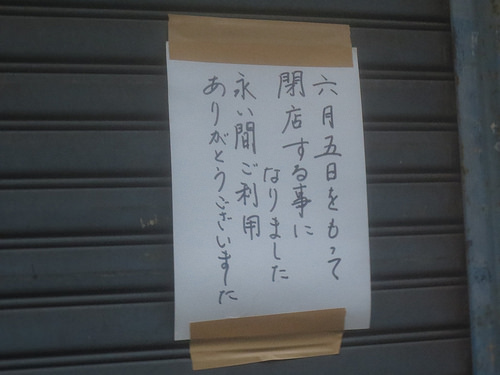 六月五日をもって
閉店する事に
なりました
永い間ご利用
ありがとうございました